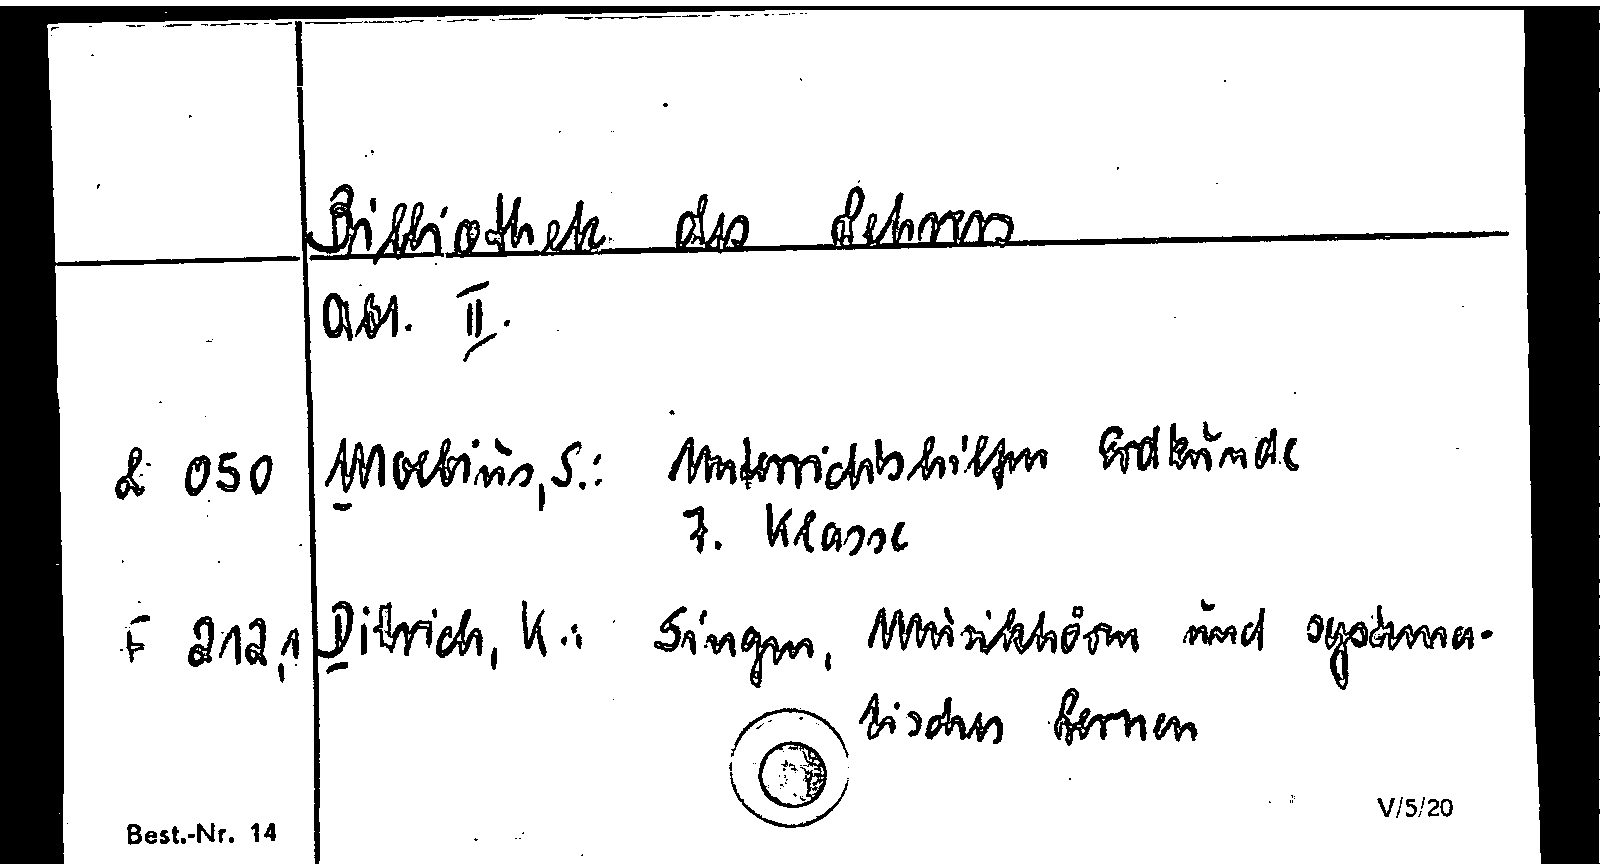 Bibliothek des Lehrers
Abt. II.
L 050 Moebius, S.: Unterrichtshilfen Erdkunde
7. Klasse
F 212,1 Ditrich, K.: Singen, Musikhören und systema-
tisches Lernen
Best.-Nr. 14
V/5/20